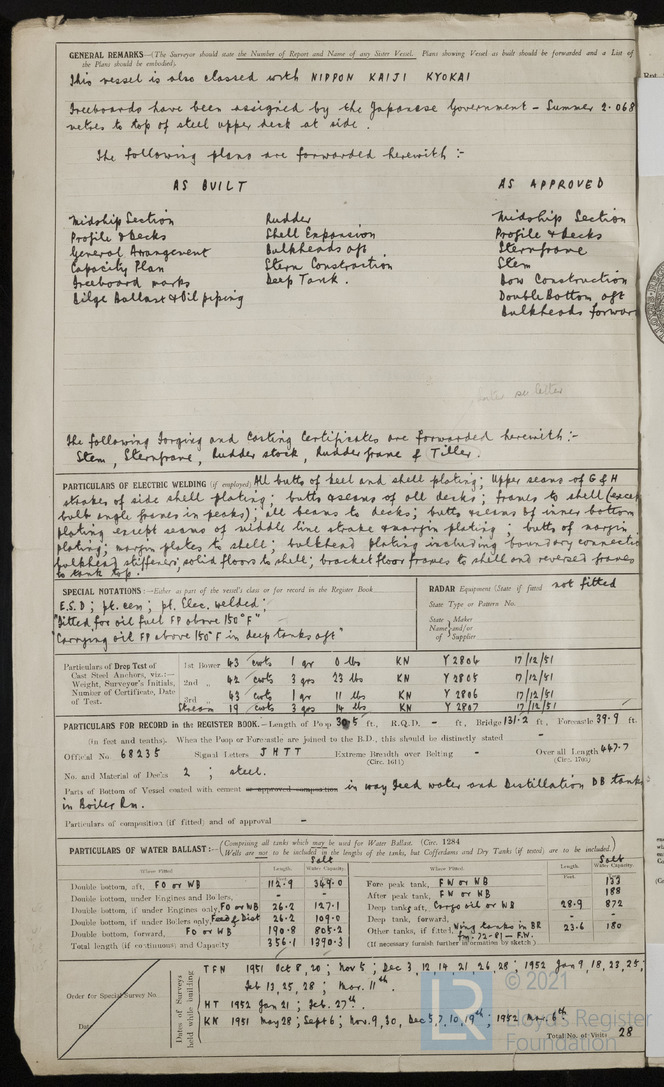 GENERAL REMARKS—(The Surveyor should state the Number of Report and Name of any Sister Vessel. Plans showing Vessel as built should be forwarded and a List of
the Plans should be embodied).
This vessel is also classed with NIPPON KAIJI KYOKAI
Freeboards have been assigned by the Japanese Government - Summer 2.068
metres to top of steel upper deck at side.
The following plans are forwarded herewith :-
AS BUILT AS APPROVED
Midship Section Rudder Midship Section
Profile & Decks Shell Expansion Profile & Decks
General Arrangement Bulkheads aft Sternframe
Capacity Plan Stern Construction Stem
Freeboard marks Deep Tank. Bow Construction
Bilge Ballast & Oil piping Double Bottom aft
Bulkheads forwar
letter
The following Forging and Casting Certificates are forwarded herewith :-
Stem, Sternframe, Rudder stock, Rudder frame & Tiller.
PARTICULARS OF ELECTRIC WELDING (if employed) All butts of keel and shell plating; Upper seams of G & H
strakes of side shell plating; butts & seams of all decks; frames to shell (except
bulb angle frames in peaks); all beams to decks; butts & seams of inner bottom
plating except seams of middle line strake & margin plating; butts of margin
plating; margin plates to shell; bulkhead plating including boundary connectio
bulkhead stiffeners; solid floors to shell; bracket floor frames to shell and reversed frames
to tank top.
SPECIAL NOTATIONS :—Either as part of the vessel's class or for record in the Register Book
E.S.D; pt. cen; pt. Elec. welded;
"Fitted for oil fuel FP above 150°F"
"Carrying oil FP above 150°F in deep tanks aft"
RADAR Equipment (State if fitted not fitted
State Type or Pattern No.
State Maker
Name and/or
of Supplier
Particulars of Drop Test of
Cast Steel Anchors, viz.:—
Weight, Surveyor's Initials,
Number of Certificate, Date
of Test.
1st Bower 43 cwts 1 qr 0 lbs KN Y 2804 17/12/51
2nd " 42 cwts 3 qrs 23 lbs KN Y 2805 17/12/51
3rd " 43 cwts 1 qr 11 lbs KN Y 2806 17/12/51
Stream 19 cwts 3 qrs 14 lbs KN Y 2807 17/12/51
PARTICULARS FOR RECORD in the REGISTER BOOK.—Length of Poop 30.5 ft., R.Q.D. - ft., Bridge 131.2 ft., Forecastle 39.9 ft.
(in feet and tenths). When the Poop or Forecastle are joined to the B.D., this should be distinctly stated -
Official No. 68235 Signal Letters JHTT Extreme Breadth over Belting - Over all Length 447.7
(Circ. 1611) (Circ. 1703)
No. and Material of Decks 2 ; steel.
Parts of Bottom of Vessel coated with cement or approved composition in way Feed water and Distillation DB tanks
in Boiler Rm.
Particulars of composition (if fitted) and of approval -
PARTICULARS OF WATER BALLAST:—(Comprising all tanks which may be used for Water Ballast. (Circ. 1284
Wells are not to be included in the lengths of the tanks, but Cofferdams and Dry Tanks (if tested) are to be included.)
Where Fitted Length. Salt Water Capacity. Where Fitted Length. Salt Water Capacity.
Feet.
Double bottom, aft, FO or WB 112.9 349.0
Double bottom, under Engines and Boilers, - -
Double bottom, if under Engines only, FO or WB 26.2 127.1
Double bottom, if under Boilers only, Feed & Dist 26.2 109.0
Double bottom, forward, FO or WB 190.8 805.2
Total length (if continuous) and Capacity 356.1 1390.3
Fore peak tank, FW or WB 133
After peak tank, FW or WB 188
Deep tank, aft, Cargo oil or WB 28.9 872
Deep tank, forward, - -
Other tanks, if fitted, Wing tanks in BR 23.6 180
fm. 72-81 - F.W.
(If necessary furnish further information by sketch)
Order for Special Survey No.
Date
Dates of Surveys
held while building
TFN 1951 Oct 8, 20; Nov 5; Dec 3, 12 14 21 26 28; 1952 Jan 9, 18, 23, 25,
Feb 13, 25, 28; Mar. 11th.
HT 1952 Jan 21; Feb. 27th.
KN 1951 May 28; Sept 6; Nov. 9, 30, Dec 5, 7, 10, 19th; 1952 Mar. 6th.
Total No. of Visits 28
LR
© 2021
Lloyd's Register
Foundation